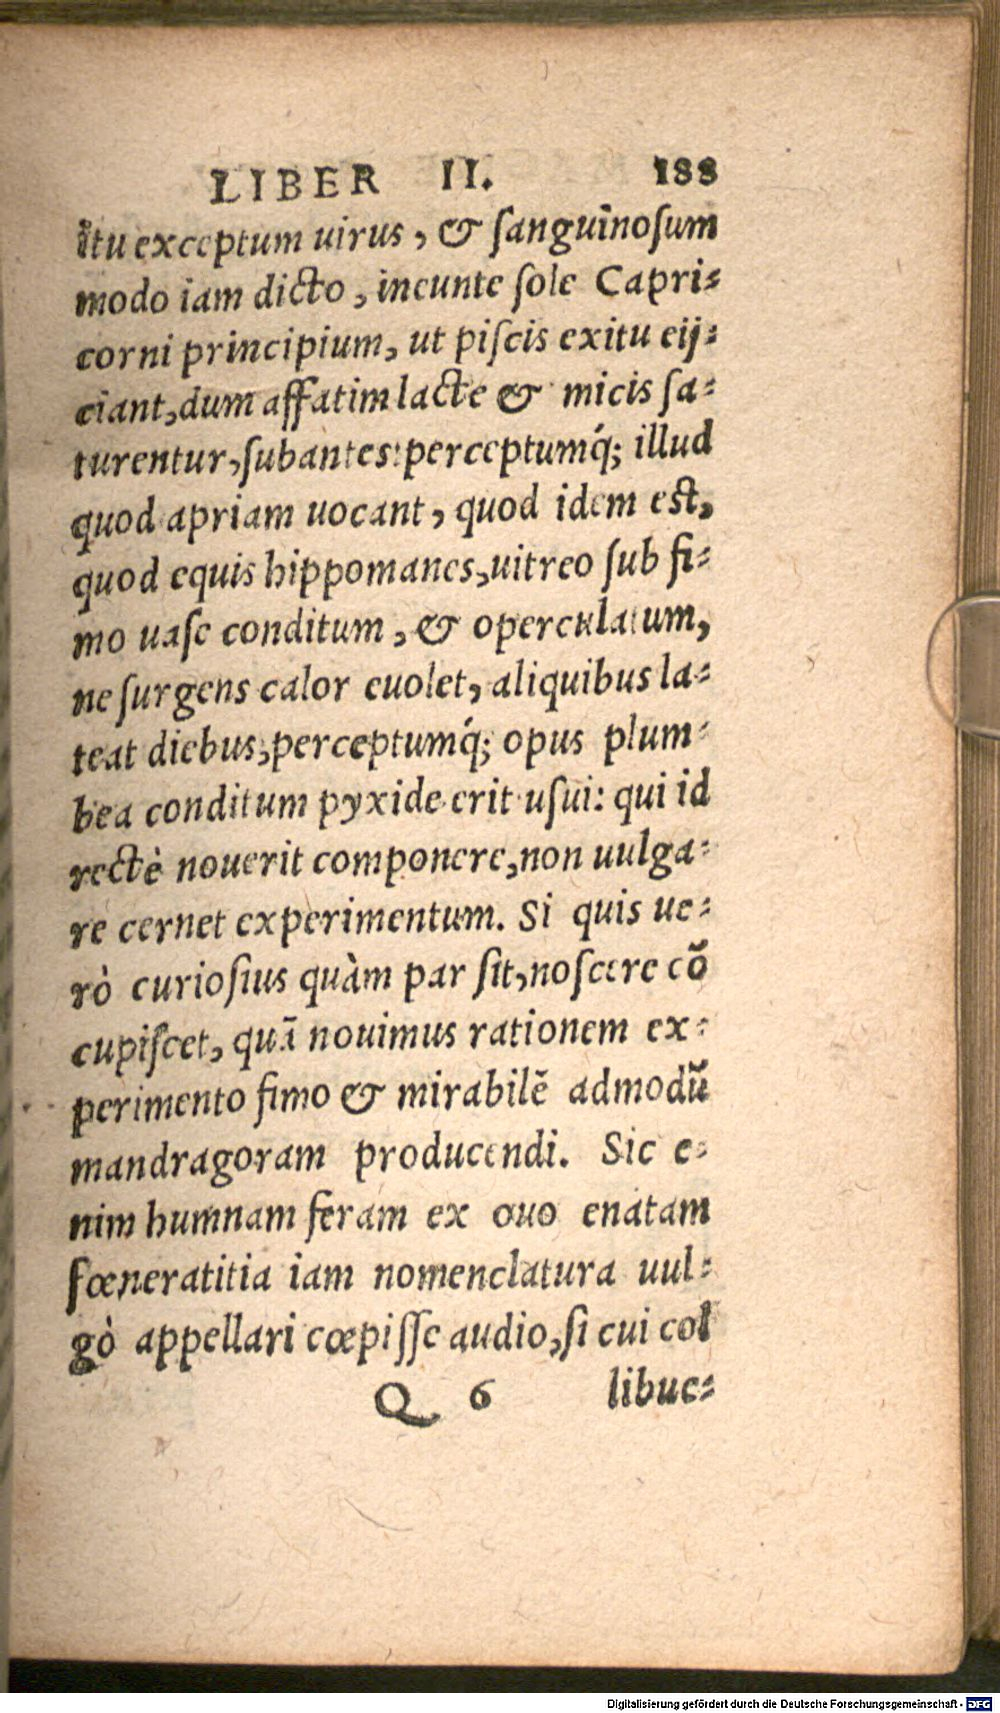 LIBER II. 188
itu exceptum uirus, & ſanguinoſum
modo iam dicto, ineunte ſole Capri⸗
corni principium, ut piſcis exitu eij⸗
ciant, dum affatim lacte & micis ſa⸗
turentur, ſubantes: perceptumq́; illud
quod apriam uocant, quod idem eſt,
quod equis hippomanes, uitreo ſub fi⸗
mo uaſe conditum, & operculatum,
ne ſurgens calor euolet, aliquibus la⸗
teat diebus, perceptumq́; opus plum⸗
bea conditum pyxide erit uſui: qui id
rectè nouerit componere, non uulga⸗
re cernet experimentum. Si quis ue⸗
rò curioſius quàm par ſit, noſcere cõ
cupiſcet, quā nouimus rationem ex⸗
perimento fimo & mirabilē admodū
mandragoram producendi. Sic e⸗
nim humnam feram ex ouo enatam
fœneratitia iam nomenclatura uul⸗
gò appellari cœpiſſe audio, ſi cui col
Q 6 libue⸗
Digitalisierung gefördert durch die Deutsche Forschungsgemeinschaft - DFG